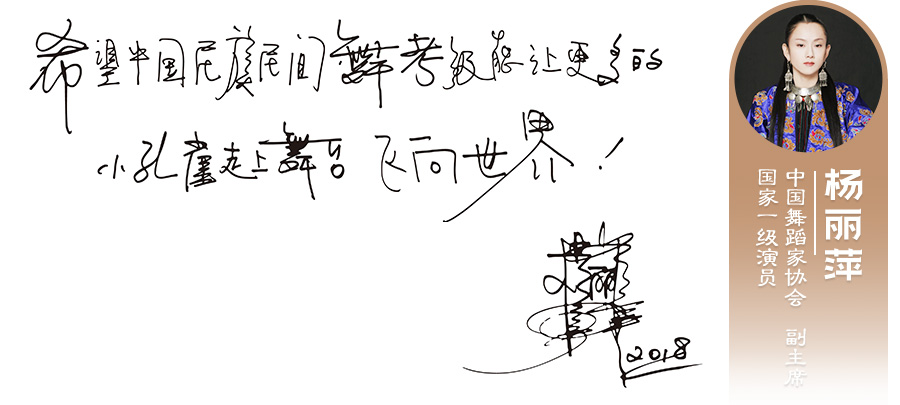 希望中国民族民间舞考级能让更多的
小孔雀走上舞台飞向世界！
2018
杨丽萍
中国舞蹈家协会 副主席
国家一级演员